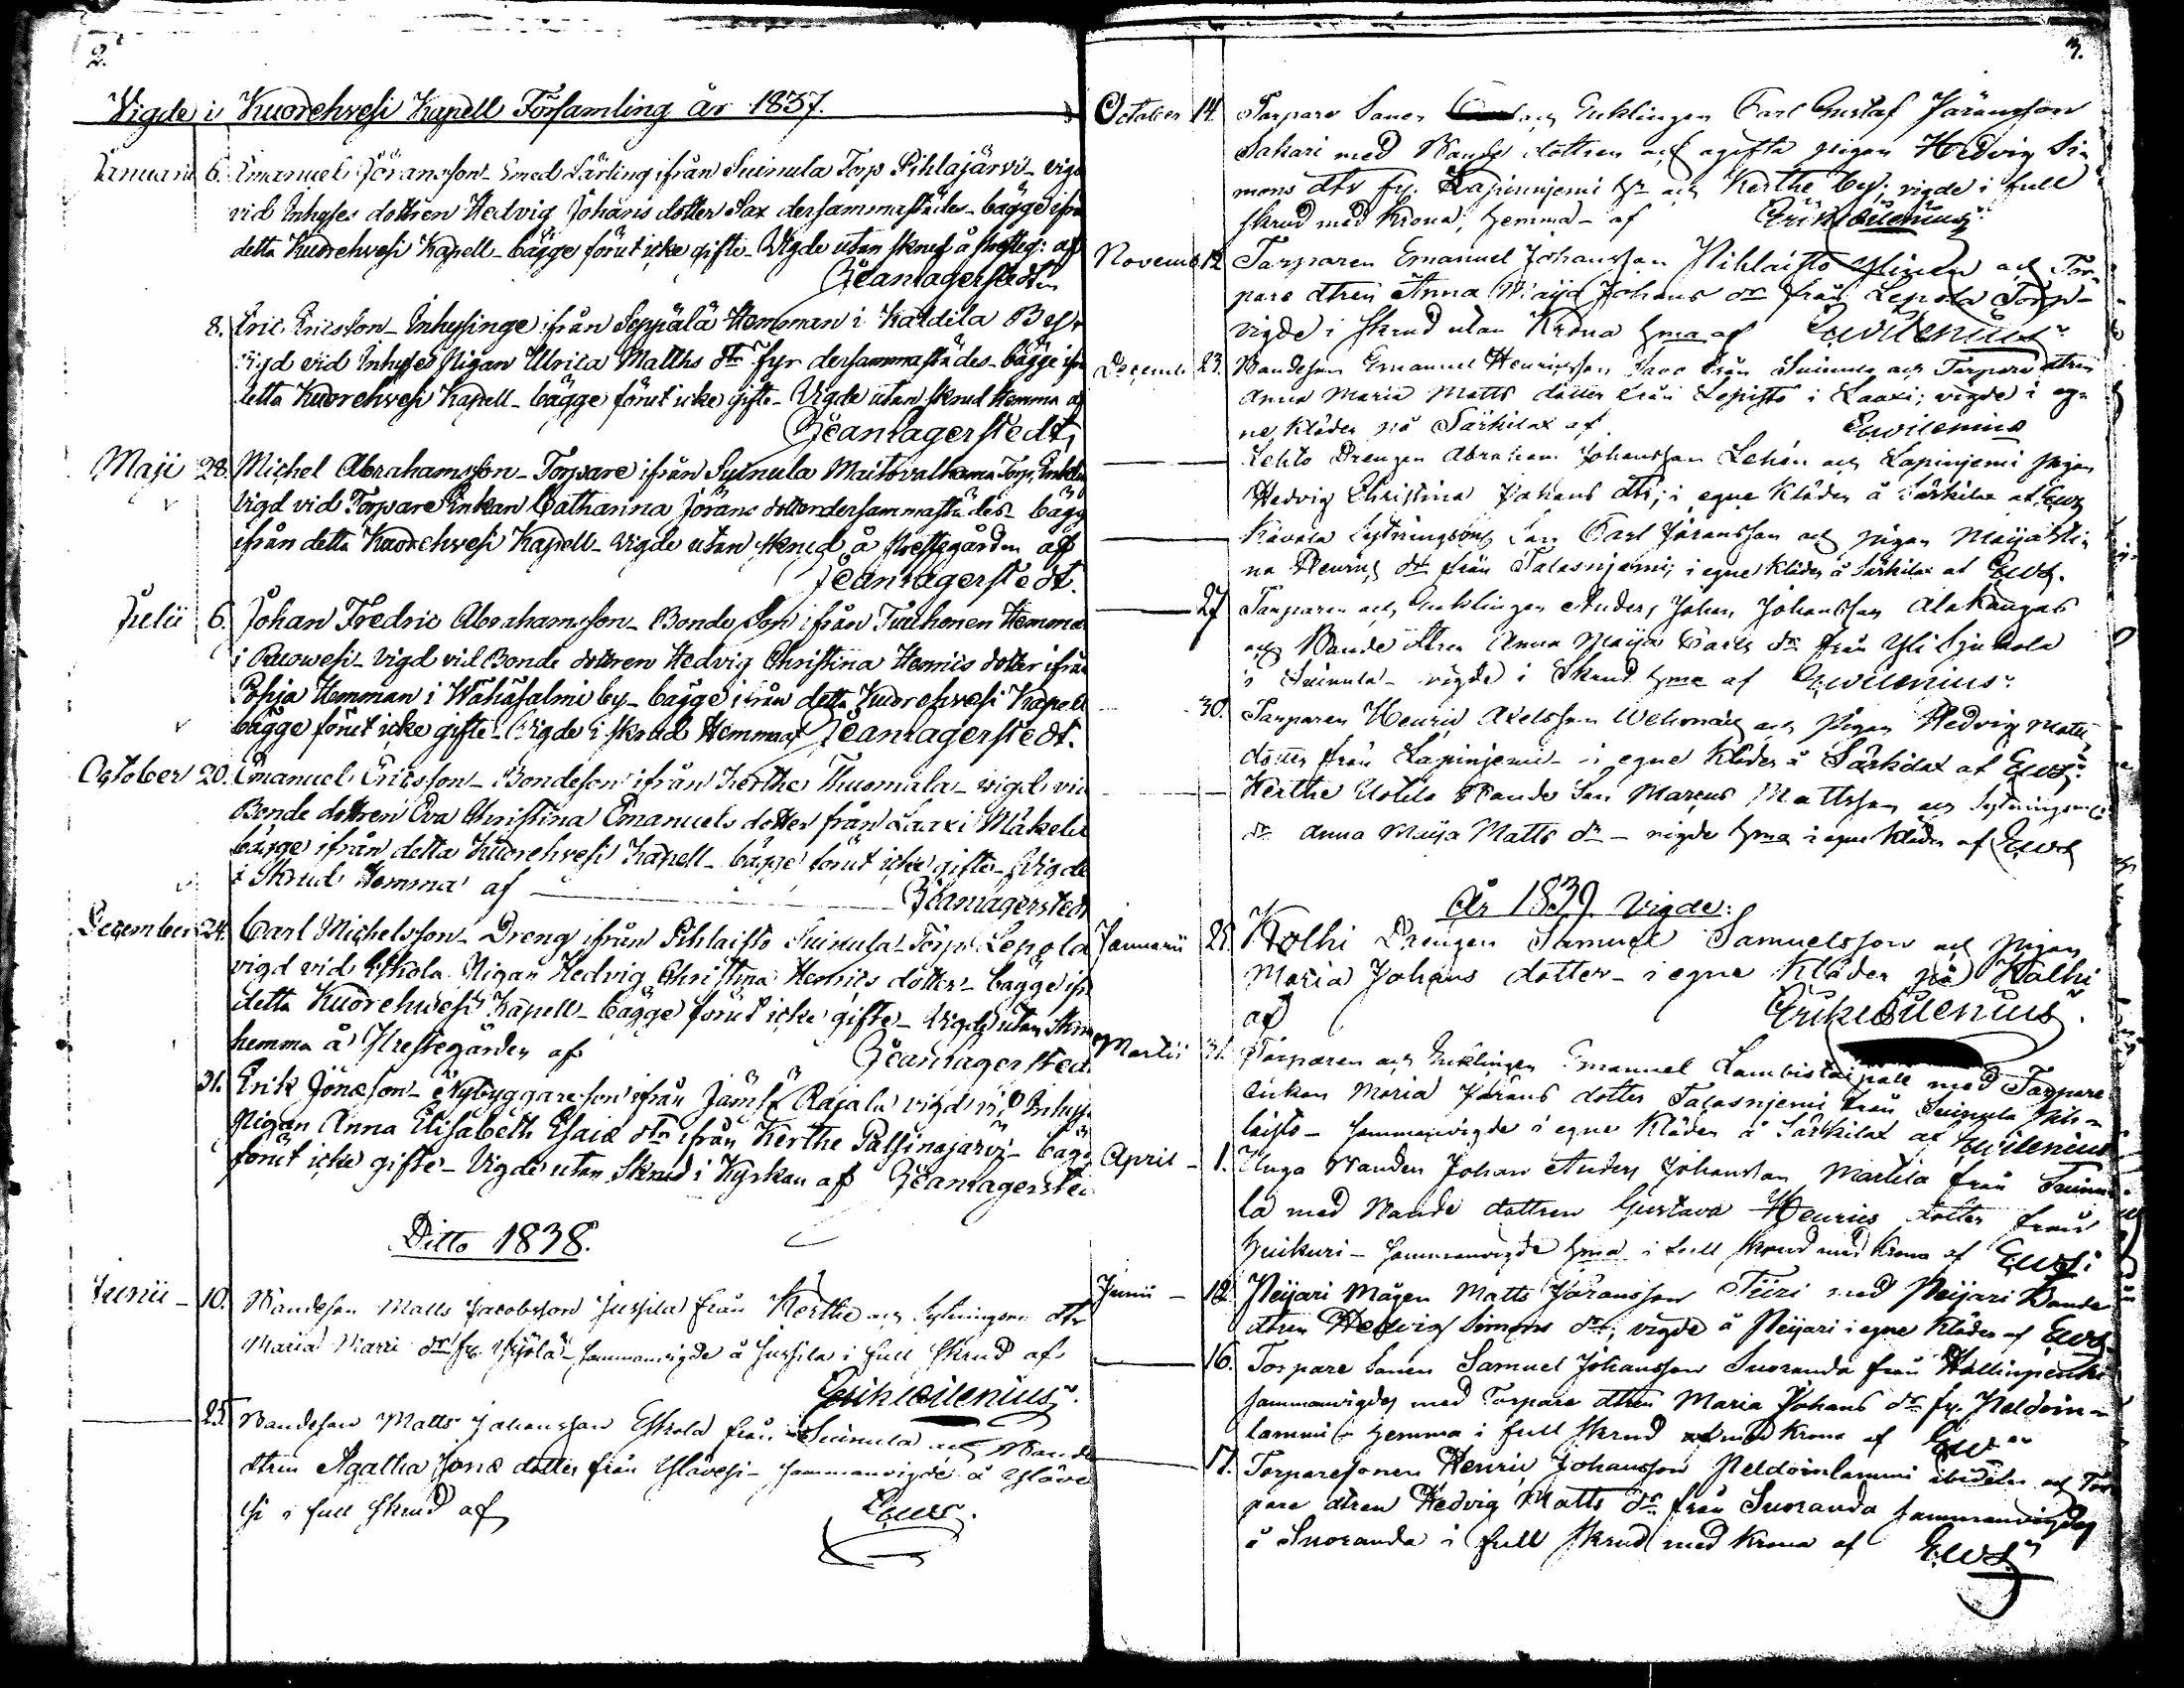 2.
Vigde i Kuorehvesi Kapell Församling år 1837.
Januarii 6. Emanuel Göransson Smed Lärling ifrån Suinula Torp Pihlajärvi vigd
vid Inhyses dottren Hedvig Johans dotter Sax dersammastädes bägge ifrån
detta Kuorehvesi Kapell bägge förut icke gifte Vigde utan skrud å Presteg: af
JeanLagerstedt
8. Eric Ericsson Inhysinge ifrån Seppälä Hemman i Kaldila By
vigd vid Inhyses Pigan Ulrica Matths dtr Fyr dersammastädes bägge ifrån
detta Kuorehvesi Kapell bägge förut icke gifte Vigde utan skrud hemma af
JeanLagerstedt
Maji 28. Michel Abrahamsson Torpare ifrån Suinula Maitovalkama Torp, Enklin
Vigd vid Torpare Enkan Catharina Jörans dotter dersammastädes bägge
ifrån detta Kuorehvesi Kapell Vigde utan skrud å Prestegården af
JeanLagerstedt.
Julii 6. Johan Fredric Abrahamsson Bonde Son ifrån Tuuhonen Hemman
i Ruowesi Vigd vid Bonde dottren Hedvig Christina Henrics dotter ifrån
Pohja Hemman i Wähäsalmi by bägge ifrån detta Kuorehvesi Kapell
bägge förut icke gifte Vigde i skrud Hemma af JeanLagerstedt.
October 20. Emanuel Ericsson Bondeson ifrån Kerthe Thuomala vigd vid
Bonde dottren Eva Christina Emanuels dotter från Laaxi Mäkelä
bägge ifrån detta Kuorehvesi Kapell bägge förut icke gifte Vigde
i Skrud Hemma af JeanLagerstedt
December 24. Carl Michelsson Dreng ifrån Pihlaisto Suinula Torp Lepola
vigd vid Eskola Pigan Hedvig Christina Henrics dotter bägge ifr
detta Kuorehvesi Kapell bägge förut icke gifte Vigde utan skrud
hemma å Prestegården af JeanLagerstedt
31. Erik Jönsson Nybyggare son ifrån Jämsä Rajala vigd vid Inhyses
Pigan Anna Elisabeth Esaiæ dtr ifrån Kerthe Palsinajärvi bägge
förut icke gifte Vigde utan Skrud i Kyrkan af JeanLagerstedt
Ditto 1838.
Junii 10. Bondeson Matts Jacobsson Jussila från Kerthe och Sytningsm. dtr
Maria Marci dtr fr. Yrjölä sammanvigde å Jussila i full skrud af
Erik Wilenius.
25. Bondeson Matts Johansson Eskola från Suinula och Bonde
dtren Agatha Jonæ dotter från Ylävesi sammanvigde å Yläve
si i full skrud af Ews.
3.
October 14. Torpare Sonen och Enklingen Carl Gustaf Jöransson
Sakari med Bonde dottren och ogifta pigan Hedvig Si
mons dtr fr. Lapinnjemi och Kerthe by; vigde i full
skrud med Krona, hemma af Erik Wilenius
Novemb 12. Torparen Emanuel Johansson Pihlaisto Ylinen och Tor
pare dtren Anna Maija Johans dr från Lepola Torp
vigde i skrud utan Krona hma af Ewilenius
Decemb 23. Bondeson Emanuel Henricsson från Suinula och Torpare dtren
Anna Maria Matts dotter från Lepistö i Laaxi; vigde i eg
ne kläder på Särkilax af Ewilenius
Lehto Drengen Abraham Johansson Lehén och Lapinjemi pigan
Hedvig Christina Johans dtr; i egne kläder å Särkilax af Ews
Kavala Sytningsons Son Carl Jöransson och pigan Maija Sti
na Henrics dr från Talasnjemi; i egne kläder å Särkilax af Ews.
27. Torparen och Enklingen Anders Johan Johansson Alakangas
och Bonde dtren Anna Maija Carls dr från Yli Sjukola
i Suinula vigde i Skrud hma af Ewilenius
30. Torparen Henric Axelsson Wehomäki och Pigan Hedvig Matts
dotter från Lapinjemi i egne kläder å Särkilax af Ews
Kerthe Uotila Bonde Son Marcus Mattsson och Sytningsm
dr Anna Maija Matts dr vigde hma i egne kläder af Ews
År 1839 Vigde:
Januarii 28. Kolhi Drengen Samuel Samuelsson och pigan
Maria Johans dotter i egne kläder på Kolhi
af Erik Wilenius.
Martii 31. Torparen och Enklingen Emanuel Lambistaipale med Torpare
enkan Maria Jörans dotter Talasnjemi från Suinula Pih
laisto sammanvigde i egne kläder å Särkilax af Ewilenius
April 1. Unga Bonden Johan Anders Johansson Mattila från Suinu
la med Bonde dottren Gustava Henrics dotter från
Huikuri sammanvigde hma i full skrud med krona af Ews.
Junii 12. Peijari Mågen Matts Jöransson Tiiri med Peijari Bonde
dtren Hedvig Simons dr, vigde å Peijari i egne kläder af Ews
16. Torpare Sonen Samuel Johansson Suoranda från Hallinpenki
sammanvigdes med Torpare dtren Maria Johans dr fr. Peldoin
lammi hemma i full skrud med krona af Ew
17. Torparesonen Henric Johansson Peldoinlammi ibidem och Tor
pare dtren Hedvig Matts dr från Suoranda sammanvigdes
å Suoranda i full skrud med krona af Ews